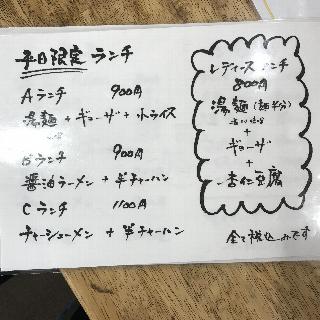 平日限定 ランチ
A ランチ 900円
湯麺 + ギョーザ + 小ライス
B ランチ 900円
醤油ラーメン + 半チャーハン
C ランチ 1100円
チャーシューメン + 半チャーハン
レディースランチ
800円
湯麺 (麺半分)
+
ギョーザ
+
杏仁豆腐
全て税込みです